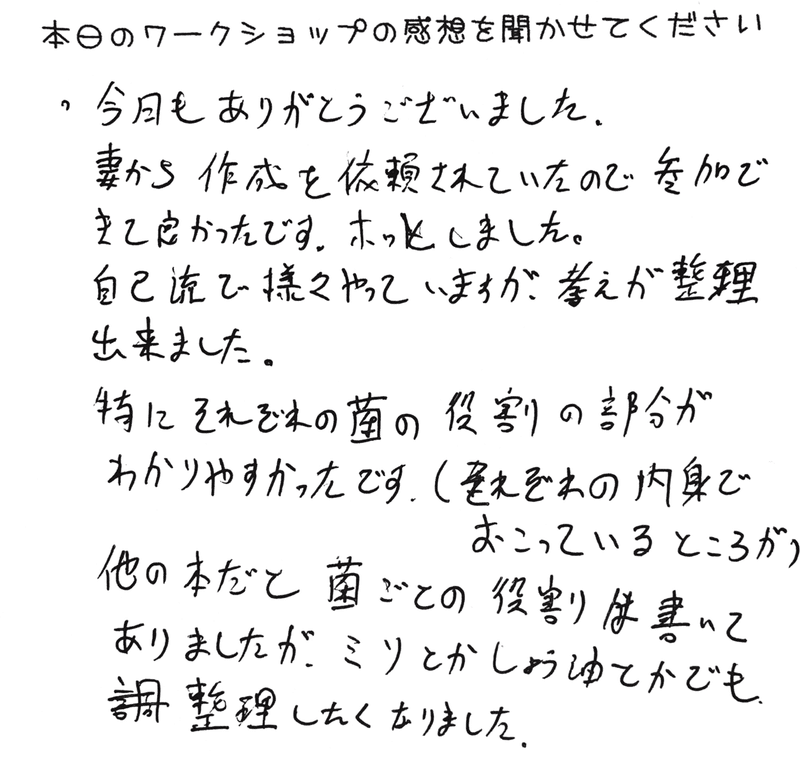 本日のワークショップの感想を聞かせてください
今日もありがとうございました。
妻から作成を依頼されていたので参加で
きて良かったです。ホッとしました。
自己流で様々やっていますが、考えが整理
出来ました。
特にそれぞれの菌の役割の部分が
わかりやすかったです。(それぞれの内身で
おこっているところが)
他の本だと菌ごとの役割は書いて
ありましたが、ミソとかしょう油とかでも
整理したくなりました。